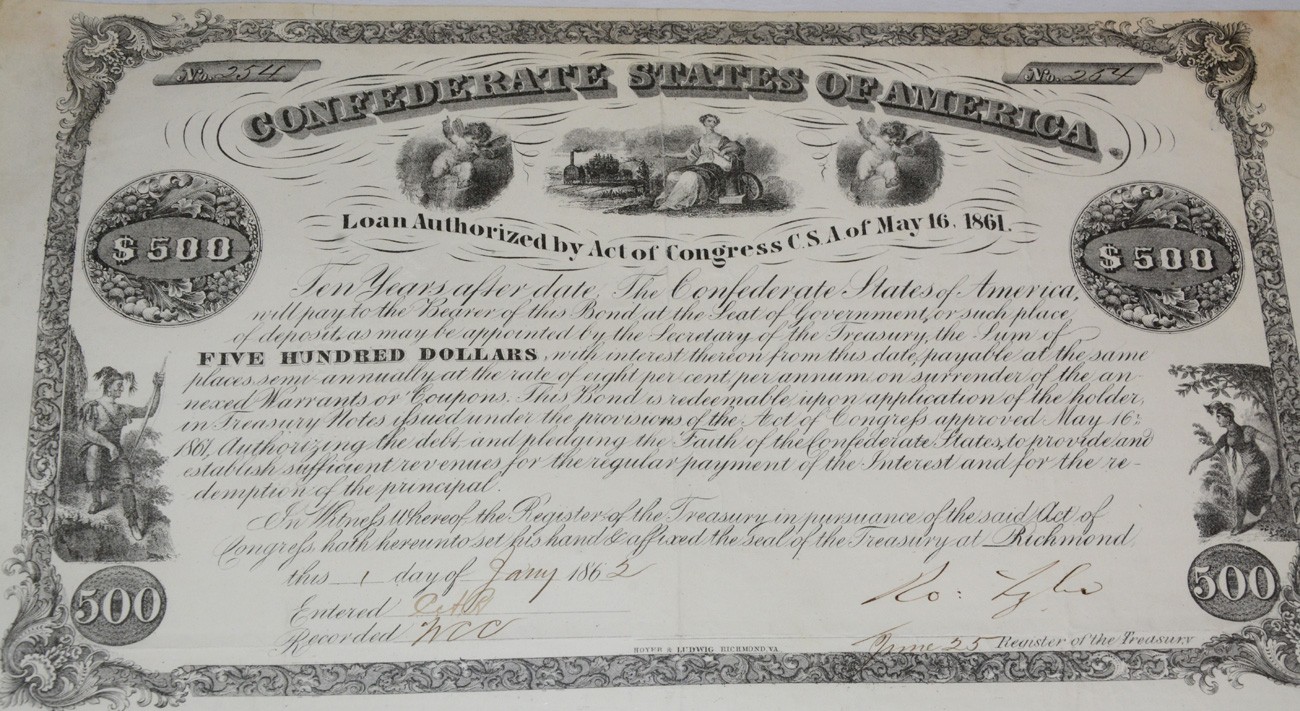 No. 254
No. 254
CONFEDERATE STATES OF AMERICA.
Loan Authorized by Act of Congress C.S.A. of May 16, 1861.
$500
$500
Ten Years after date, The Confederate States of America,
will pay to the Bearer of this Bond at the Seat of Government, or such place
of deposit, as may be appointed by the Secretary of the Treasury, the Sum of
FIVE HUNDRED DOLLARS, with interest thereon from this date, payable at the same
places, semi-annually at the rate of eight per cent, per annum, on surrender of the an-
nexed Warrants or Coupons. This Bond is redeemable upon application of the holder,
in Treasury Notes issued under the provisions of the Act of Congress approved May 16:
1861, Authorizing the debt, and pledging the Faith of the Confederate States, to provide and
establish sufficient revenues for the regular payment of the Interest and for the re-
demption of the principal.
In Witness Whereof the Register of the Treasury in pursuance of the said Act of
Congress, hath hereunto set his hand & affixed the seal of the Treasury at Richmond
this 1 day of Jany 1862
500
500
Entered
Ro: Tyler
Recorded WCC
June 25 Register of the Treasury
HOYER & LUDWIG RICHMOND, VA